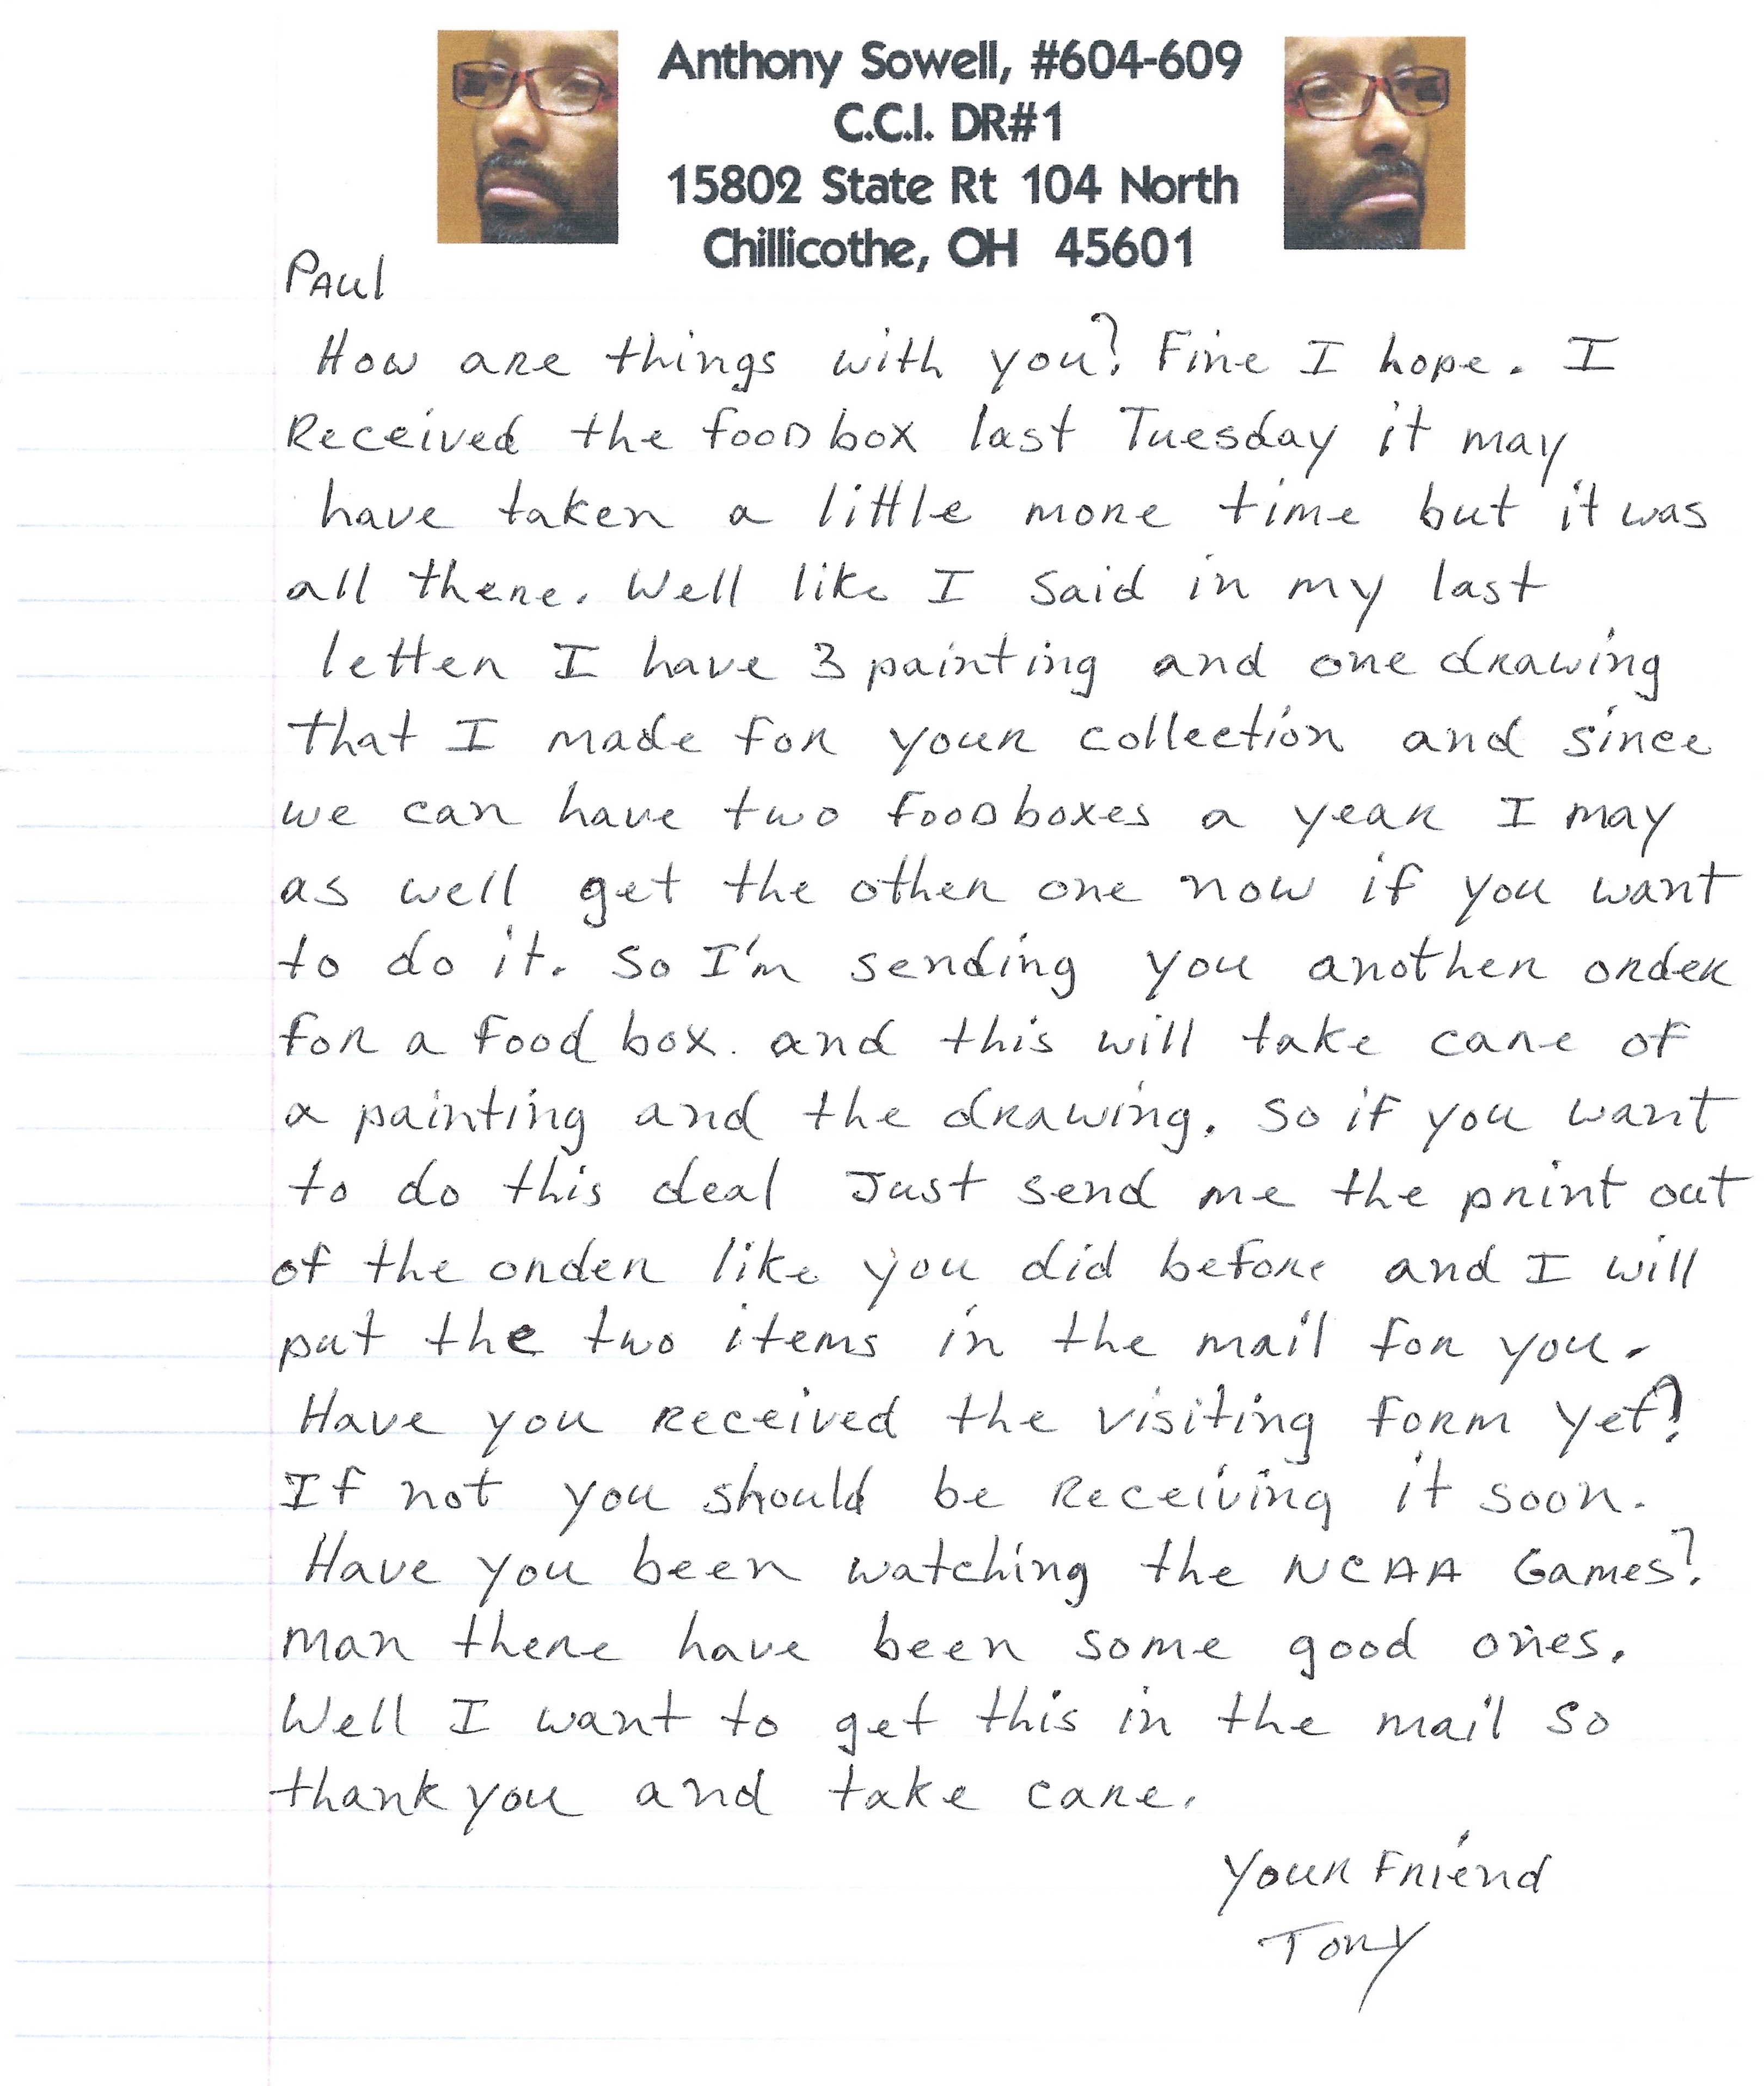 Anthony Sowell, #604-609
C.C.I. DR#1
15802 State Rt 104 North
Chillicothe, OH 45601
Paul
How are things with you? Fine I hope. I
Received the food box last Tuesday it may
have taken a little more time but it was
all there. Well like I said in my last
letter I have 3 painting and one drawing
that I made for your collection and since
we can have two food boxes a year I may
as well get the other one now if you want
to do it. So I'm sending you another order
for a food box. and this will take care of
a painting and the drawing. So if you want
to do this deal Just send me the print out
of the order like you did before and I will
put the two items in the mail for you.
Have you received the visiting form yet?
If not you should be Receiving it soon.
Have you been watching the NCAA Games?
Man there have been some good ones.
Well I want to get this in the mail so
thank you and take care.
Your Friend
Tony